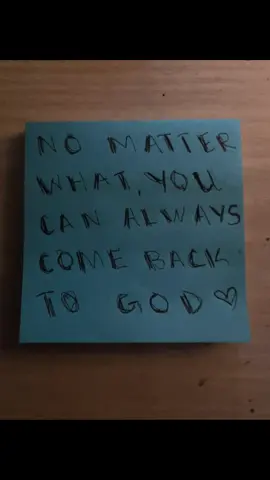 NO MATTER
WHAT, YOU
CAN ALWAYS
COME BACK
TO GOD♡